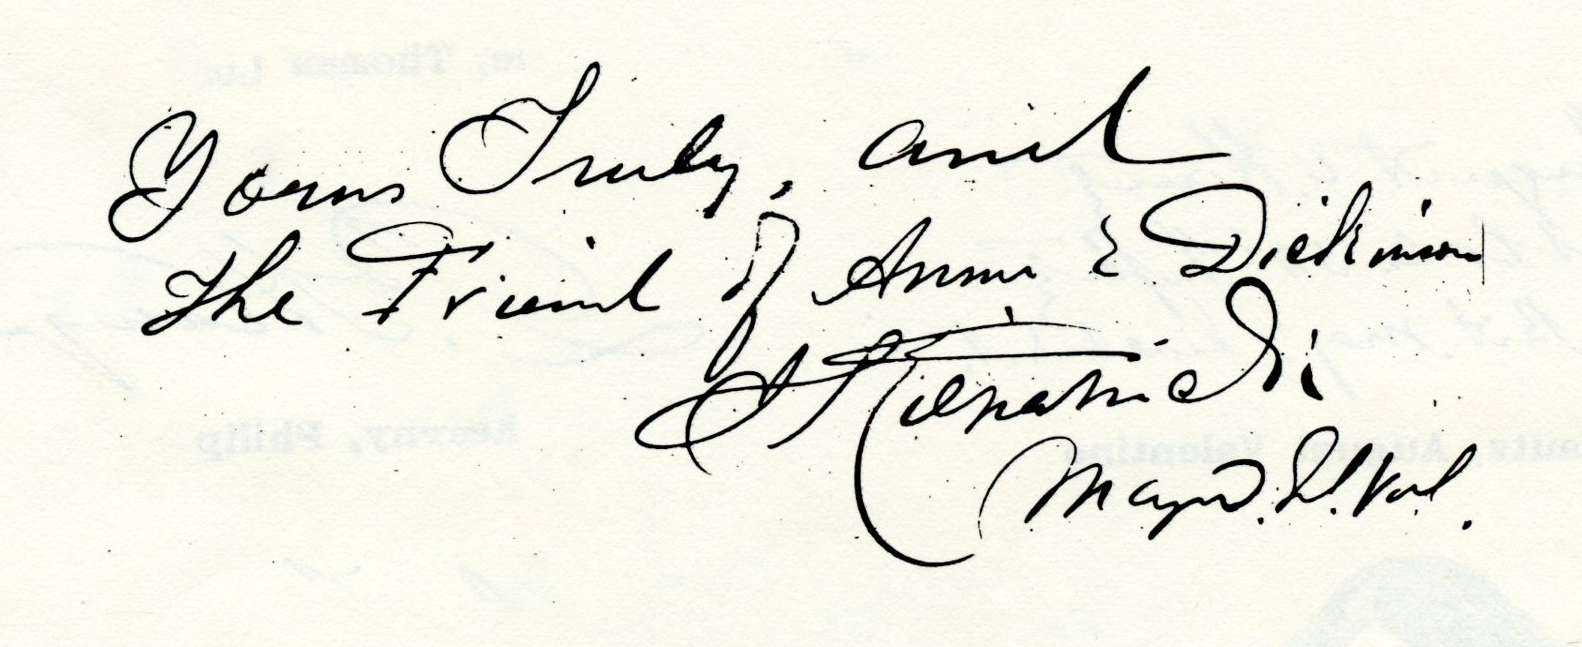 Yours Truly, and
The Friend of Anna E Dickinson
J Kilpatrick
Vol.